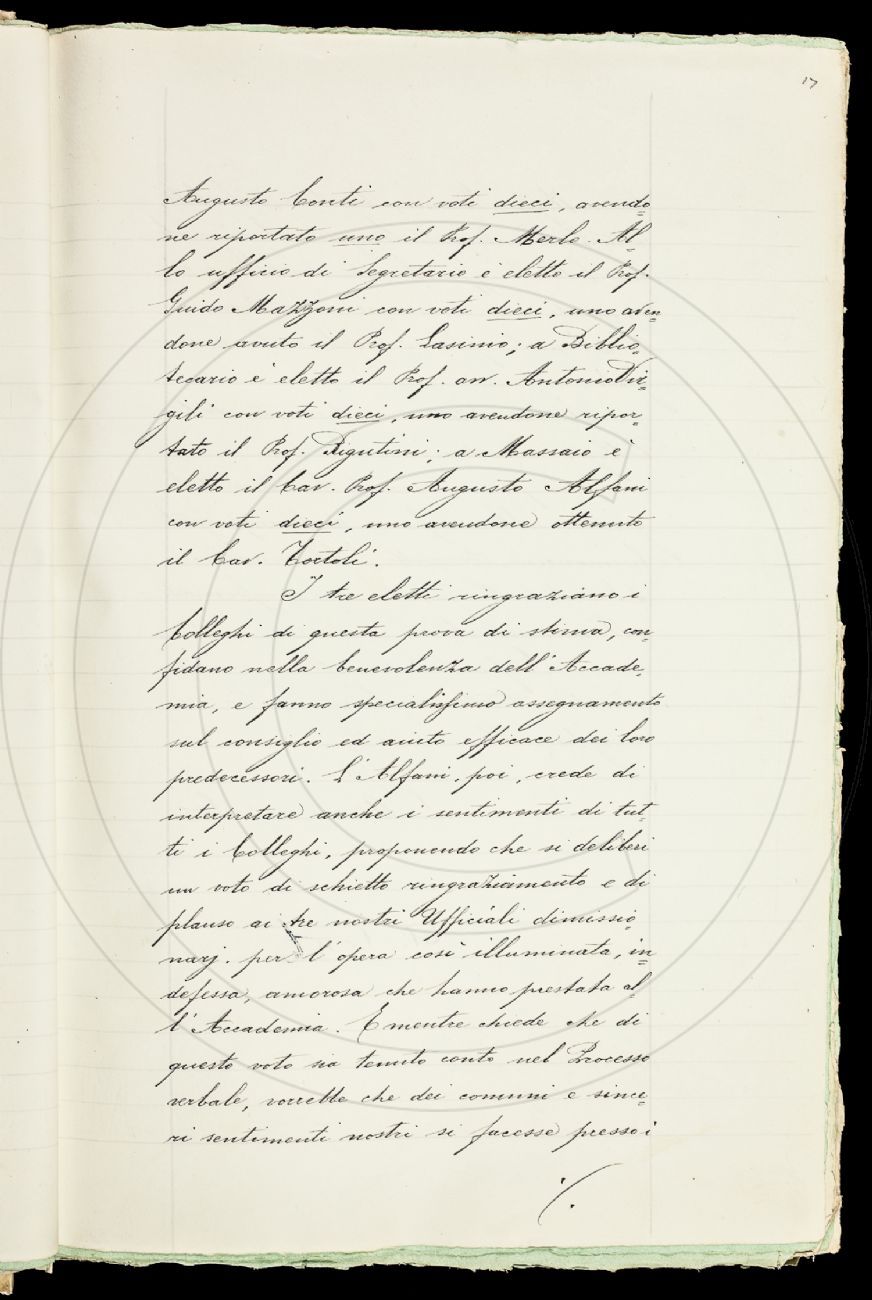 17
Augusto Conti con voti dieci, avendo=
ne riportato uno il Prof. Merlo. Al=
lo ufficio di Segretario è eletto il Prof.
Guido Mazzoni con voti dieci, uno aven=
done avuto il Prof. Lasinio; a Biblio=
tecario è eletto il Prof. avv. Antonio Vir=
gili con voti dieci, uno avendone ripor=
tato il Prof. Rigutini; a Massaio è
eletto il Cav. Prof. Augusto Alfani
con voti dieci, uno avendone ottenuto
il Cav. Tortoli.
I tre eletti ringraziano i
Colleghi di questa prova di stima, con=
fidano nella benevolenza dell'Accade=
mia, e fanno specialissimo assegnamento
sul consiglio ed aiuto efficace dei loro
predecessori. L'Alfani, poi, crede di
interpretare anche i sentimenti di tut=
ti i Colleghi, proponendo che si deliberi
un voto di schietto ringraziamento e di
plauso ai tre nostri Ufficiali dimissio=
narj. per l'opera così illuminata, in=
defessa, amorosa che hanno prestata al=
l'Accademia. E mentre chiede che di
questo voto sia tenuto conto nel Processo
verbale, vorrebbe che dei comuni e since=
ri sentimenti nostri si facesse presso i
./.